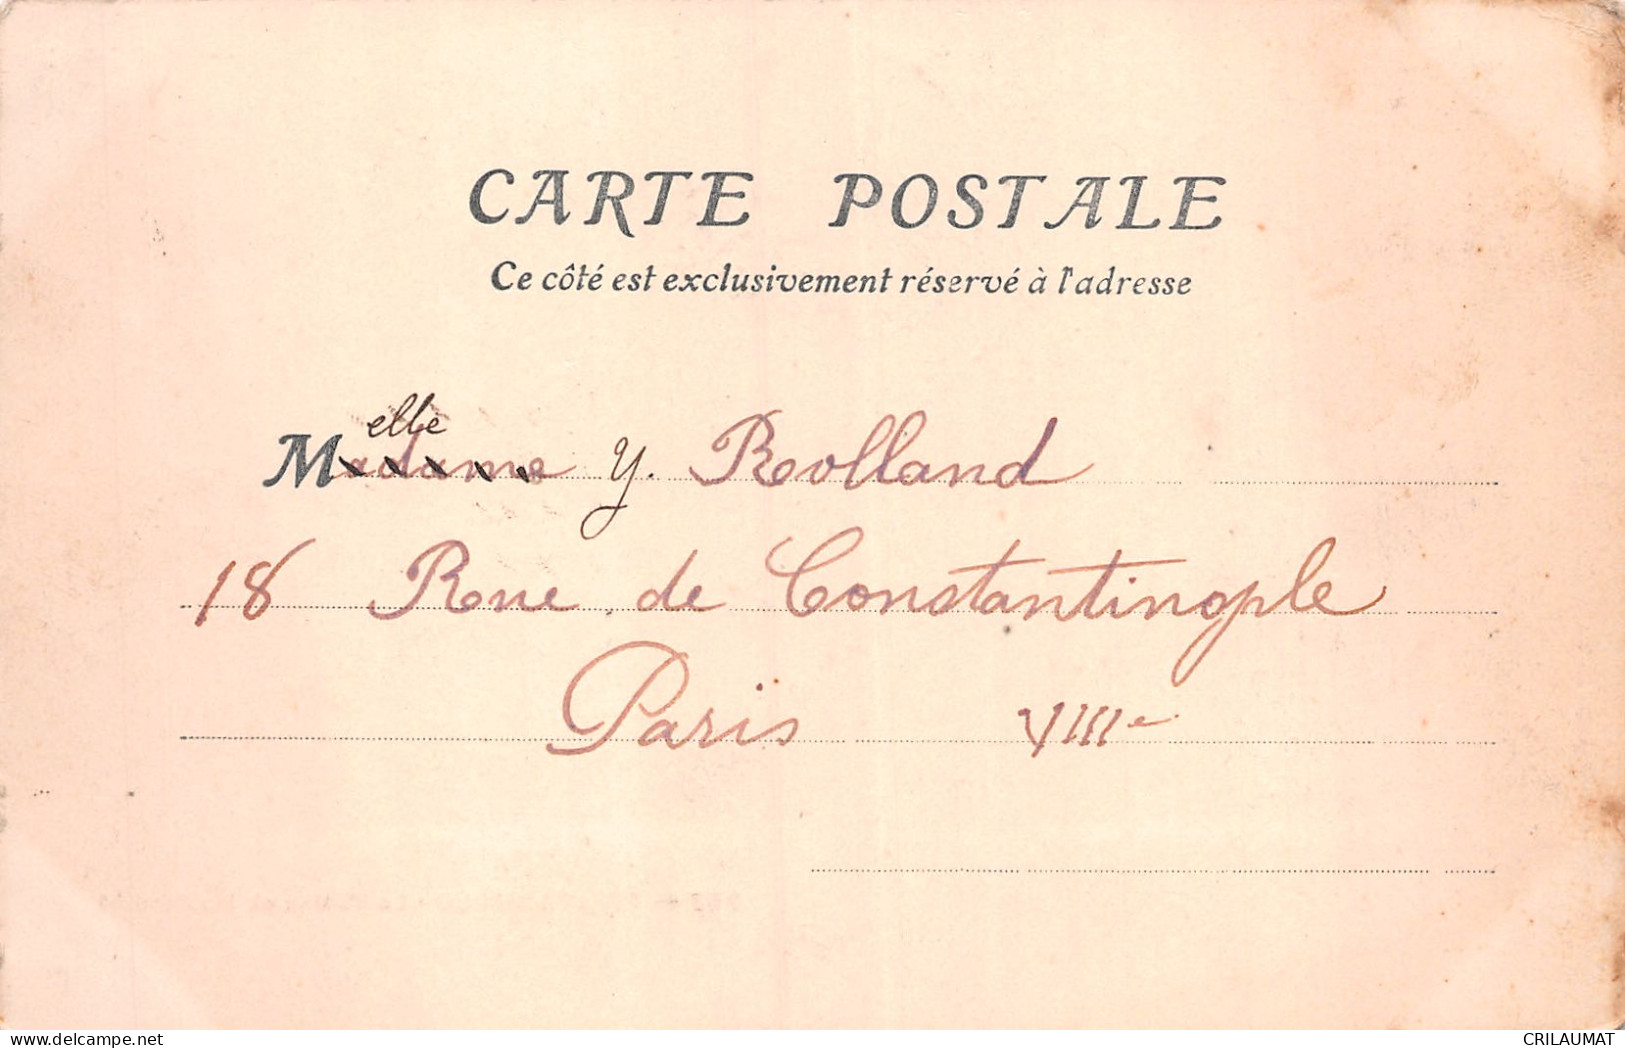 CARTE POSTALE
Ce côté est exclusivement réservé à l'adresse
elle
Madame Y. Rolland
18 Rue de Constantinople
Paris VIIIe
CRILAUMAT